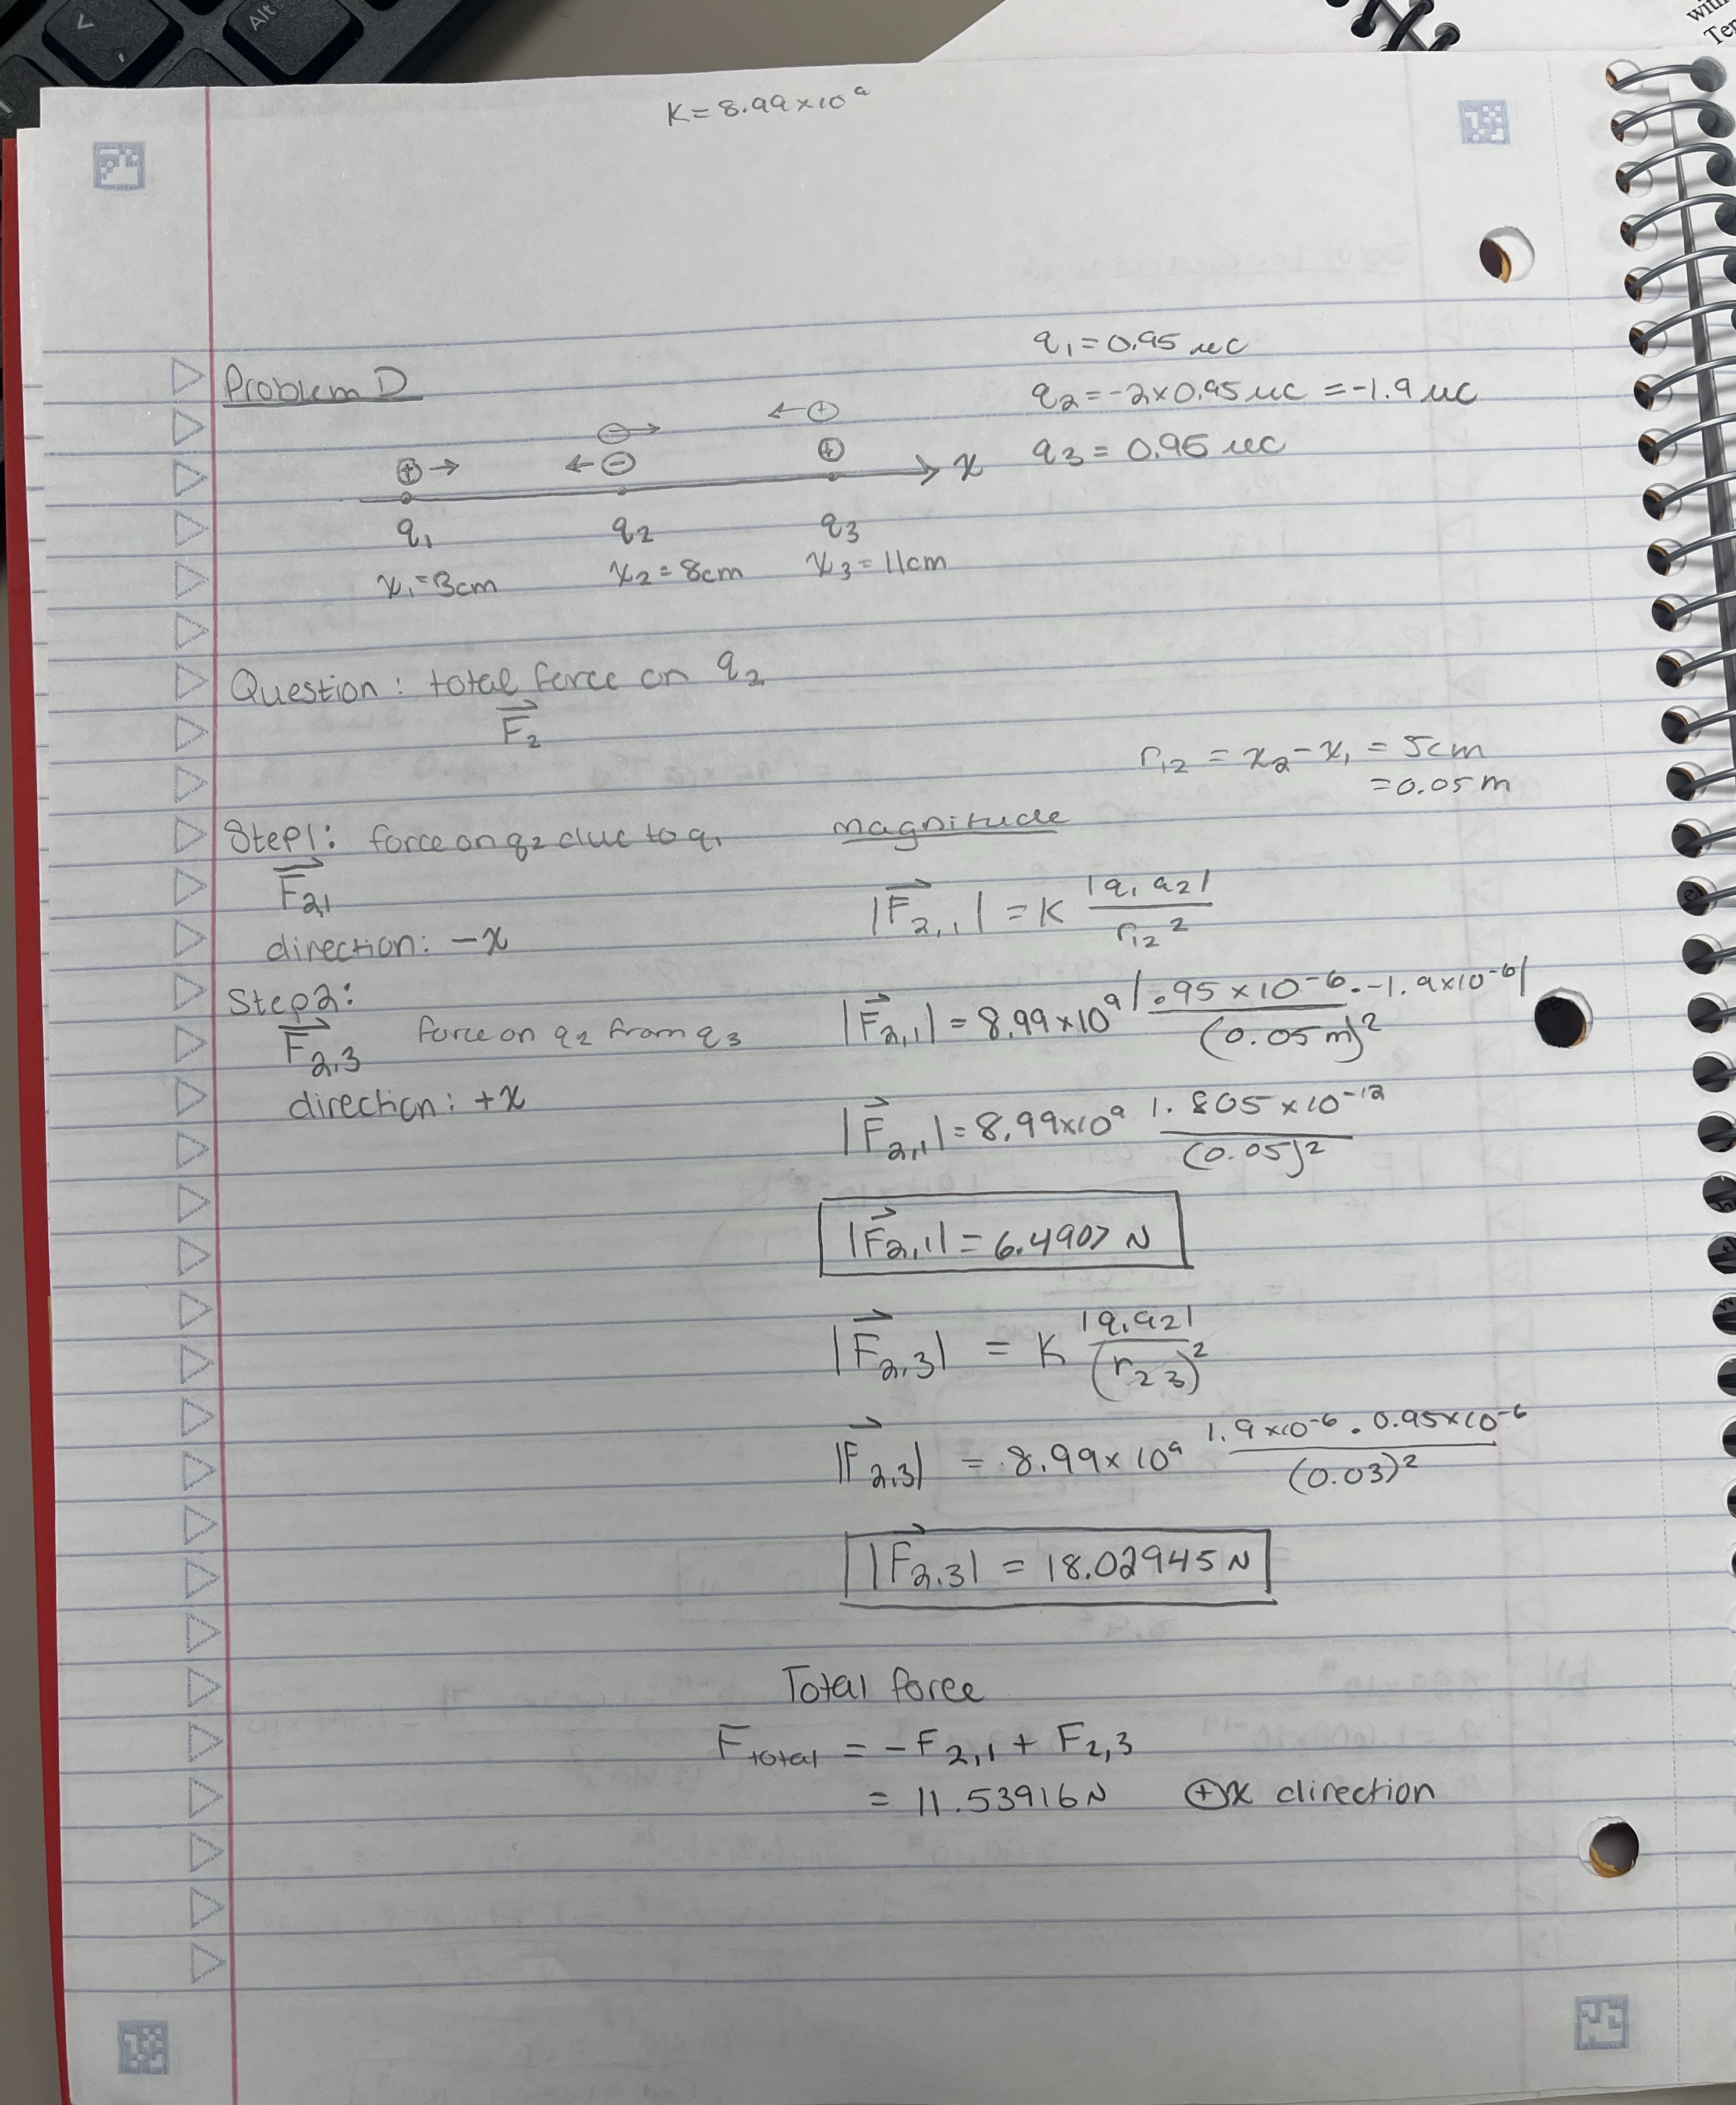 Alt
with
Ter
K = 8.99×10⁹
Problem D
q₁ = 0.95 μC
q₂ = -2×0.95 μC = -1.9 μC
q₃ = 0.95 μC
←⊕
⊖→
⊕→ ←⊖ ⊕ → x
q₁ q₂ q₃
x₁=3cm x₂=8cm x₃=11cm
Question: total force on q₂
F⃗₂
r₁₂ = x₂-x₁ = 5cm
=0.05m
Step1: force on q₂ due to q₁ magnitude
F⃗₂,₁
|F⃗₂,₁| = K |q₁q₂| / r₁₂²
direction: -x
Step2:
F⃗₂,₃ force on q₂ from q₃
|F⃗₂,₁| = 8.99×10⁹ |.95×10⁻⁶·-1.9×10⁻⁶| / (0.05m)²
direction: +x
|F⃗₂,₁| = 8.99×10⁹ 1.805×10⁻¹² / (0.05)²
|F⃗₂,₁| = 6.4907 N
|F⃗₂,₃| = K |q₁q₂| / (r₂₃)²
|F⃗₂,₃| = 8.99×10⁹ 1.9×10⁻⁶·0.95×10⁻⁶ / (0.03)²
|F⃗₂,₃| = 18.02945 N
Total force
F total = -F₂,₁ + F₂,₃
= 11.53916 N ⊕x direction